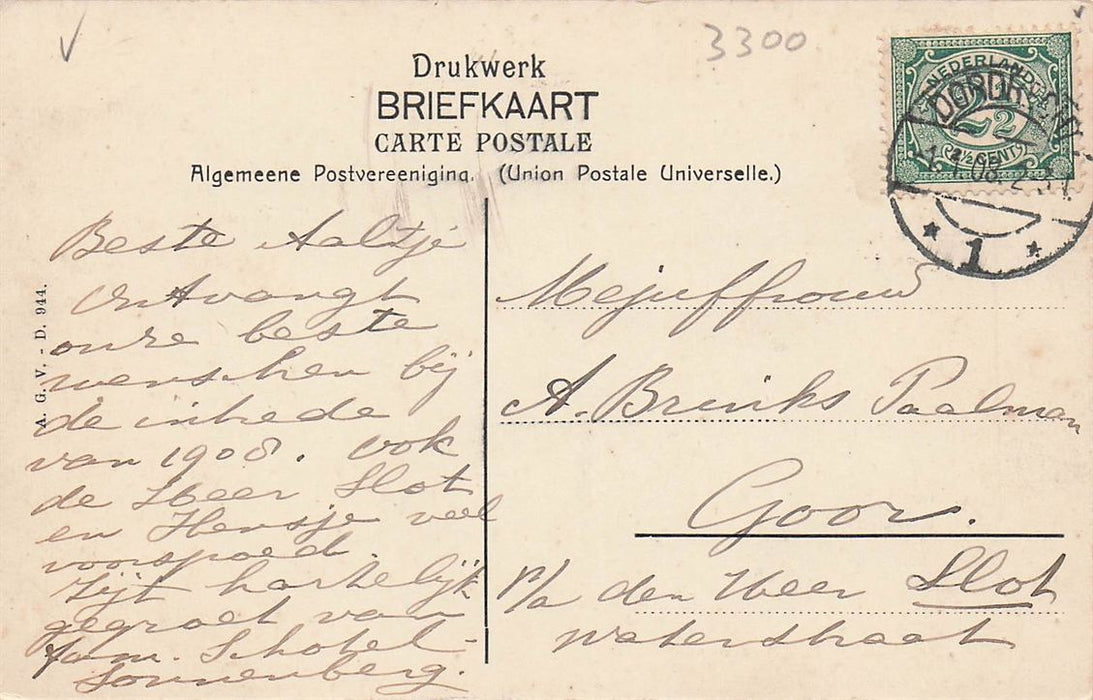 3300
Drukwerk
BRIEFKAART
CARTE POSTALE
Algemeene Postvereeniging. (Union Postale Universelle.)
NEDERLAND
2½
2½ CENT
DORDRECHT
1.1.08. 2-3 V.
1
A. G. V. - D. 944.
Beste Aaltje
Ontvangt
onze beste
wenschen bij
de intrede
van 1908. ook
de Heer Slot
en Hensje veel
voorspoed.
Zijt hartelijk
gegroet van
fam. Schotel-
Sonnenberg.
Mejuffrouw
A. Brinks Paalman
Goor.
p/a den Heer Slot
waterstraat